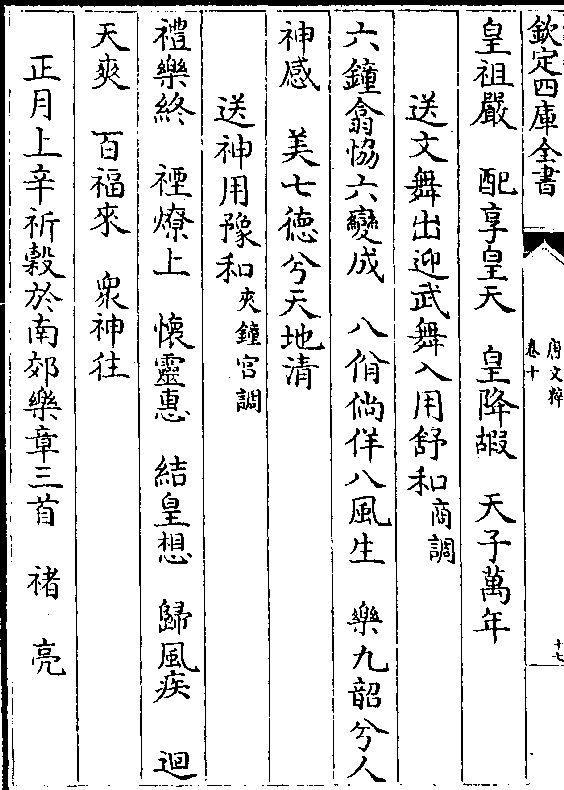 欽定四庫全書
唐文粹
卷十
十七
皇祖嚴　配享皇天　皇降嘏　天子萬年
送文舞出迎武舞入用舒和商調
六鐘翕恊六變成　八佾倘佯八風生　樂九韶兮人
神感　美七德兮天地清
送神用豫和夾鐘宮調
禮樂終　禋燎上　懷靈惠　結皇想　歸風疾　迴
天爽　百福來　衆神往
正月上辛祈穀於南郊樂章三首　褚亮